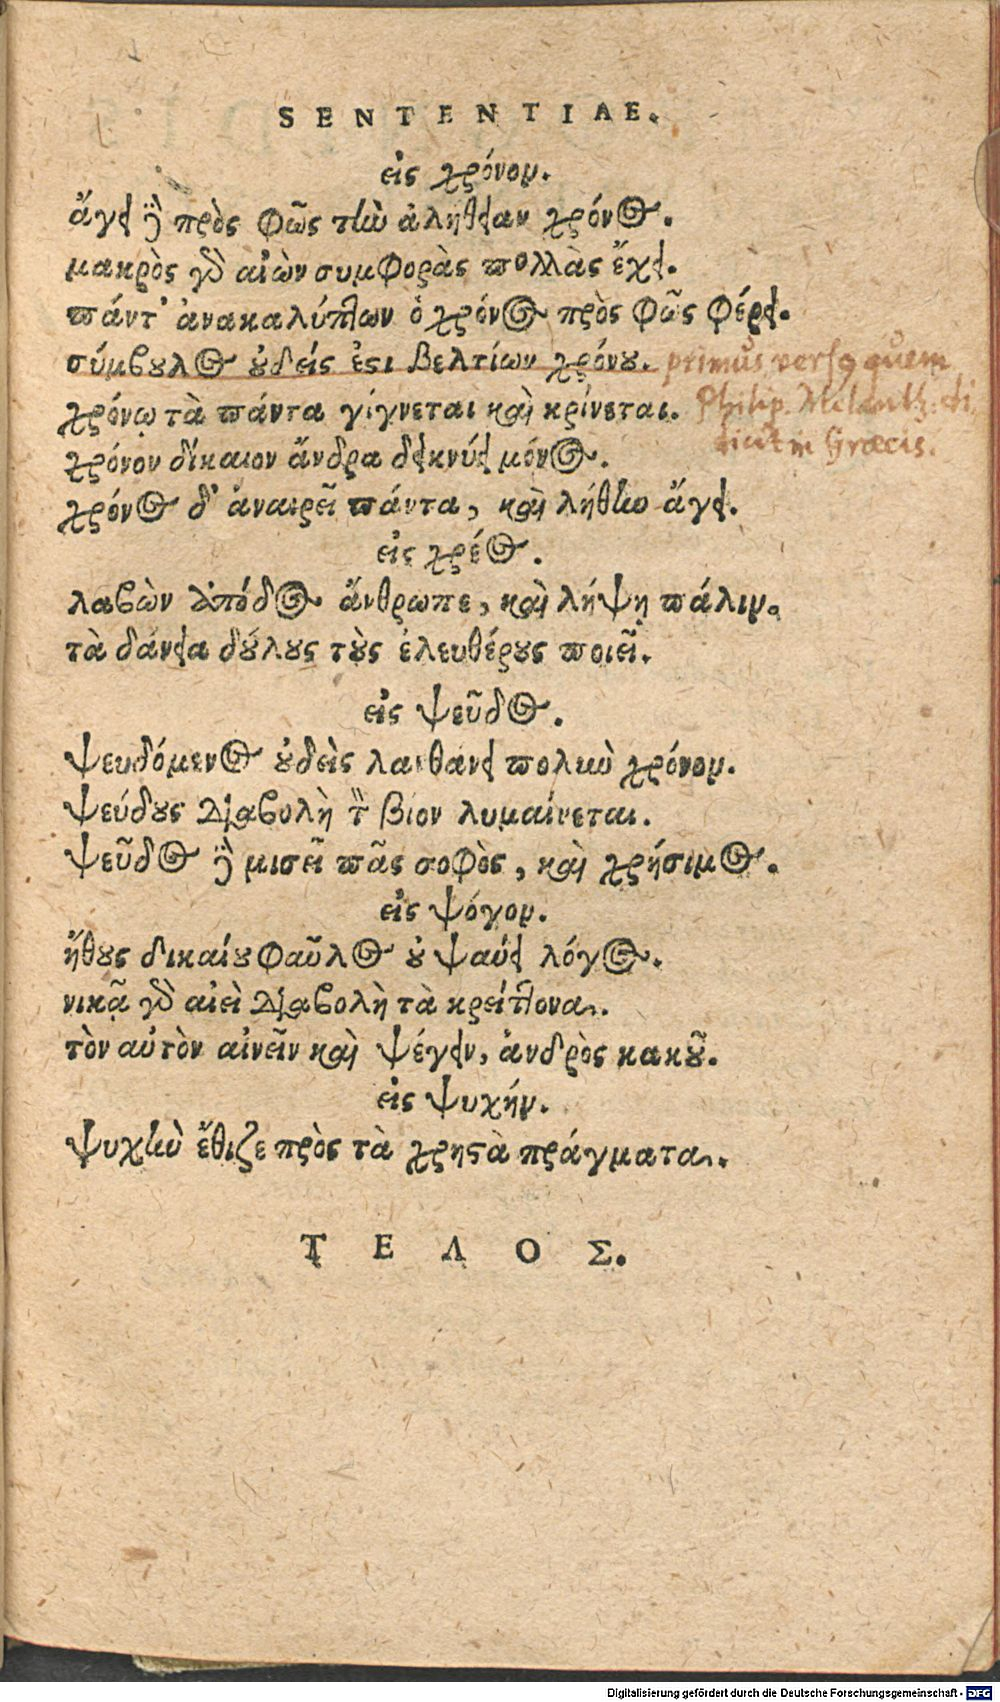 SENTENTIAE.
εἰς χρόνον.
ἄγει δὲ πρὸς φῶς τὴν ἀλήθειαν χρόνος.
μακρὸς γὰρ αἰὼν συμφορὰς πολλὰς ἔχει.
πάντ' ἀνακαλύπτων ὁ χρόνος πρὸς φῶς φέρει.
σύμβουλος οὐδείς ἐστι βελτίων χρόνου. primus versus quem
χρόνῳ τὰ πάντα γίγνεται καὶ κρίνεται. Philip. Melanth: di,
χρόνον δίκαιον ἄνδρα δεικνύει μόνος. dicit in Græcis.
χρόνος δ' ἀναιρεῖ πάντα, καὶ λήθην ἄγει.
εἰς χρέος.
λαβὼν ἀπόδος ἄνθρωπε, καὶ λήψῃ πάλιν.
τὰ δάνεια δούλους τοὺς ἐλευθέρους ποιεῖ.
εἰς ψεῦδος.
ψευδόμενος οὐδεὶς λανθάνει πολὺν χρόνον.
ψεύδους διαβολὴ τὸν βίον λυμαίνεται.
ψεῦδος δὲ μισεῖ πᾶς σοφὸς, καὶ χρήσιμος.
εἰς ψόγον.
ἤθους δικαίου φαῦλος οὐ ψαύει λόγος.
νικᾷ γὰρ αἰεὶ διαβολὴ τὰ κρείττονα.
τὸν αὐτὸν αἰνεῖν καὶ ψέγειν, ἀνδρὸς κακοῦ.
εἰς ψυχήν.
ψυχὴν ἔθιζε πρὸς τὰ χρηστὰ πράγματα.
ΤΕΛΟΣ.
Digitalisierung gefördert durch die Deutsche Forschungsgemeinschaft - DFG